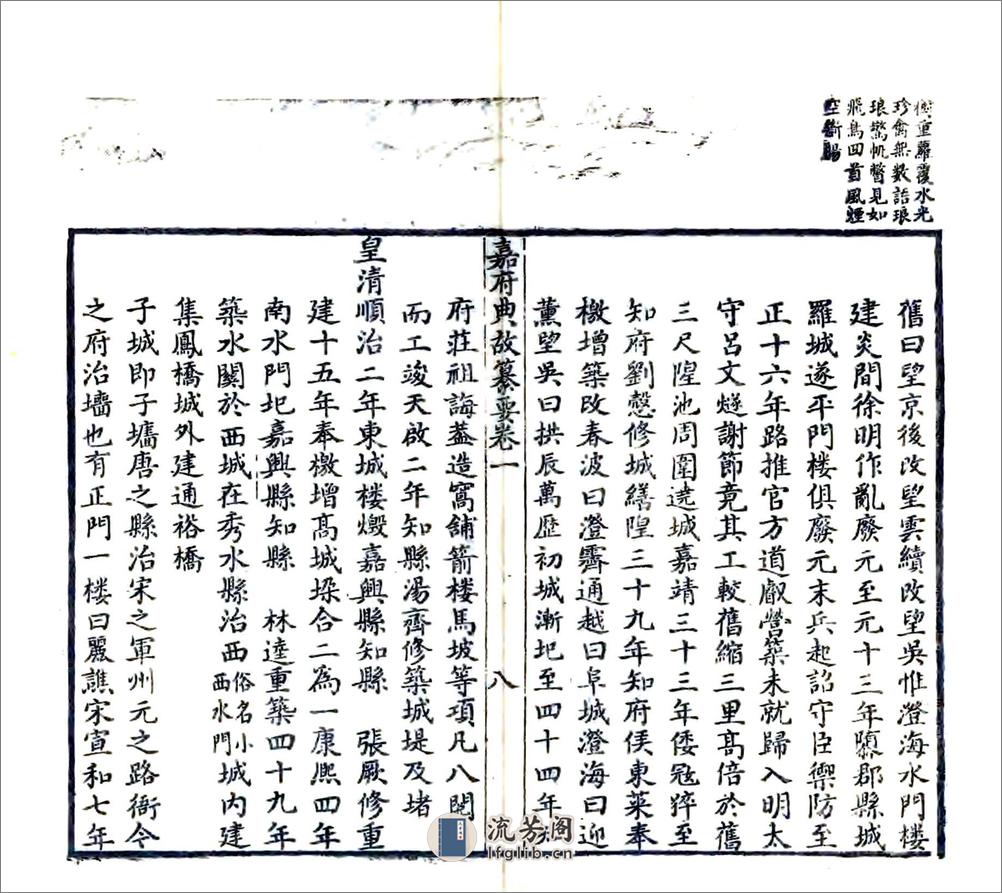 樹重蘿覆水光
珍禽無数語琅
琅驚帆瞥見如
飛鳥回首風煙
空斷腸
舊曰望京後改望雲續改望吳惟澄海水門楼
建炎間徐明作亂廢元至元十三年隳郡縣城
羅城遂平門楼俱廢元末兵起詔守臣禦防至
正十六年路推官方道叡營築未就歸入明太
守呂文燧謝節竟其工較舊縮三里髙倍於舊
三尺隍池周圍遶城嘉靖三十三年倭冦猝至
知府劉慤修城繕隍三十九年知府侯東萊奉
檄增築改春波曰澄霽通越曰阜城澄海曰迎
薰望吳曰拱辰萬歷初城漸圮至四十四年知
嘉府典故纂要卷一
八
府莊祖誨葢造窩舖箭楼馬坡等項凡八閱
而工竣天啟二年知縣湯齊修築城堤及堵
皇清順治二年東城楼燬嘉興縣知縣 張厥修重
建十五年奉檄增髙城垛合二爲一康熙四年
南水門圮嘉興縣知縣 林逵重築四十九年
築水関於西城在秀水縣治西俗名小西水門城内建
集鳳橋城外建通裕橋
子城即子墻唐之縣治宋之軍州元之路衙今
之府治墻也有正門一楼曰麗譙宋宣和七年
流芳阁
lfglib.cn